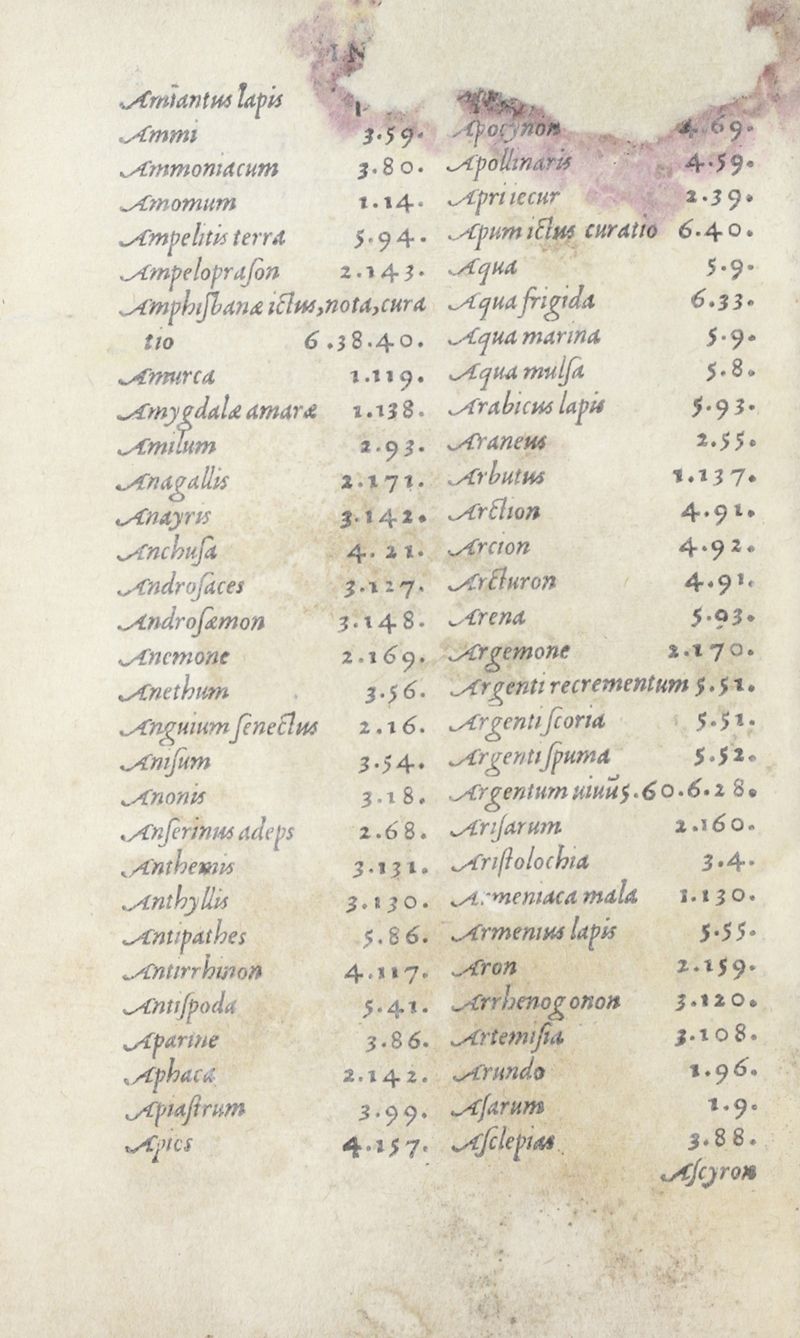 IN
Amiantus lapis
Ammi 3.59.
Ammoniacum 3.80.
Amomum 1.14.
Ampelitis terra 5.94.
Ampelopraſon 2.143.
Amphiſbanæ ictus,nota,cura
tio 6.38.40.
Amurca 1.119.
Amygdalæ amaræ 1.138.
Amilum 2.93.
Anagallis 2.171.
Anayris 3.142.
Anchuſa 4.21.
Androſaces 3.127.
Androſæmon 3.148.
Anemone 2.169.
Anethum 3.56.
Anguium ſenectus 2.16.
Aniſum 3.54.
Anonis 3.18.
Anſerinus adeps 2.68.
Anthemis 3.131.
Anthyllis 3.130.
Antipathes 5.86.
Antirrhinon 4.117.
Antiſpoda 5.41.
Aparine 3.86.
Aphaca 2.142.
Apiaſtrum 3.99.
Apics 4.157.
Apocynon 4.69.
Apollinaris 4.59.
Apri iecur 2.39.
Apum ictus curatio 6.40.
Aqua 5.9.
Aqua frigida 6.33.
Aqua marina 5.9.
Aqua mulſa 5.8.
Arabicus lapis 5.93.
Araneus 2.55.
Arbutus 1.137.
Arction 4.91.
Arcion 4.92.
Arcturon 4.91.
Arena 5.93.
Argemone 2.170.
Argenti recrementum 5.51.
Argenti ſcoria 5.51.
Argenti ſpuma 5.52.
Argentum uiuũ5.60.6.28.
Ariſarum 2.160.
Ariſtolochia 3.4.
Armeniaca mala 1.130.
Armenius lapis 5.55.
Aron 2.159.
Arrhenogonon 3.120.
Artemiſia 3.108.
Arundo 1.96.
Aſarum 1.9.
Aſclepias 3.88.
Aſcyron